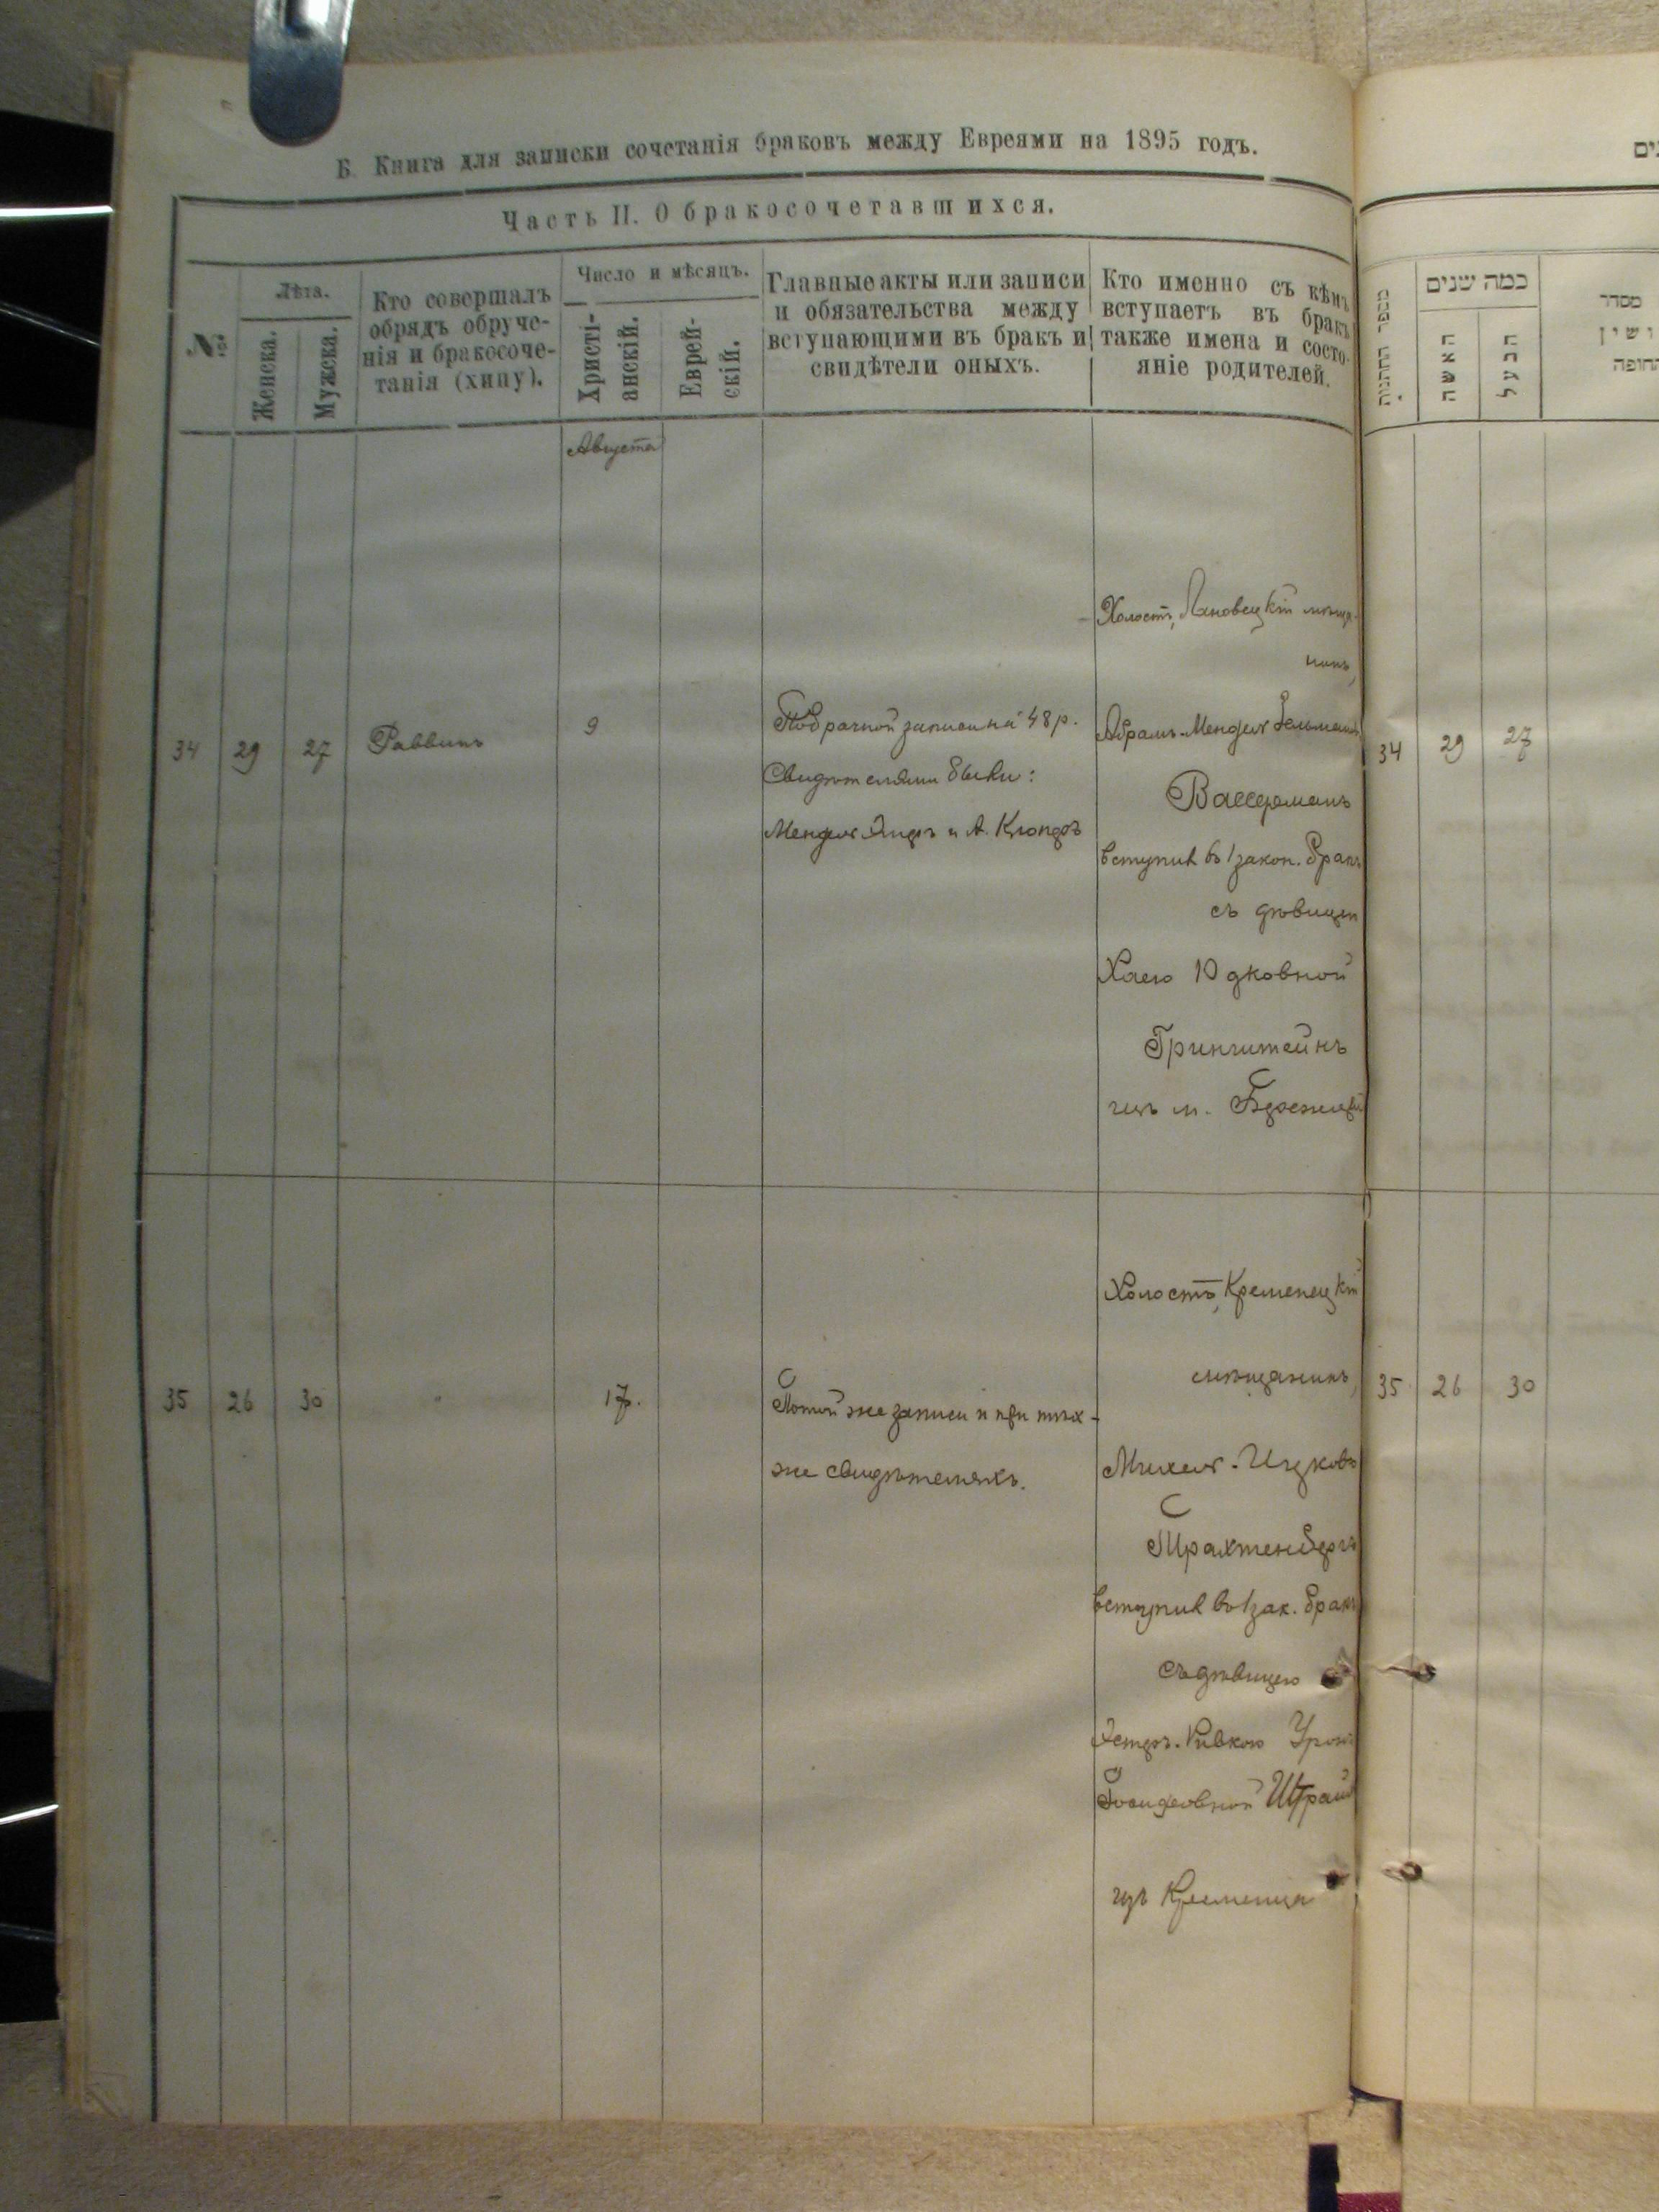 Б. Книга для записки сочетанія браковъ между Евреями на 1895 годъ.
Часть II. О бракосочетавшихся.
№
Лѣта.
Женска.
Мужска.
Кто совершалъ
обрядъ обруче-
нія и бракосоче-
танія (хипу).
Число и мѣсяцъ.
Христі-
анскій.
Еврей-
скій.
Главные акты или записи
и обязательства между
вступающими въ бракъ и
свидѣтели оныхъ.
Кто именно съ кѣмъ
вступаетъ въ бракъ
также имена и состо-
яніе родителей.
Августа
34
29
27
Раввинъ
9
По брачной записи на 48 р.
Свидѣтелями были:
Мендель и А.
Холостъ, Лановецкій мѣща-
нинъ,
Абрамъ-Мендель Зельманъ
Вассерманъ
вступил въ 1 закон. бракъ
съ дѣвицей
Хаею Юдковной
Гринштейнъ
изъ м.
35
26
30
17.
По той же записи и при тѣхъ-
же свидѣтеляхъ.
Холостъ, Кременецкій
мѣщанинъ,
Михель-Ицковъ
Трахтенбергъ
вступил въ 1 зак. бракъ
съ дѣвицею
Эстеръ-Ривкою
Іосифовной
изъ Кременца
מספר החתונות
כמה שנים
האשה
הבעל
מסדר
34
29
27
35
26
30